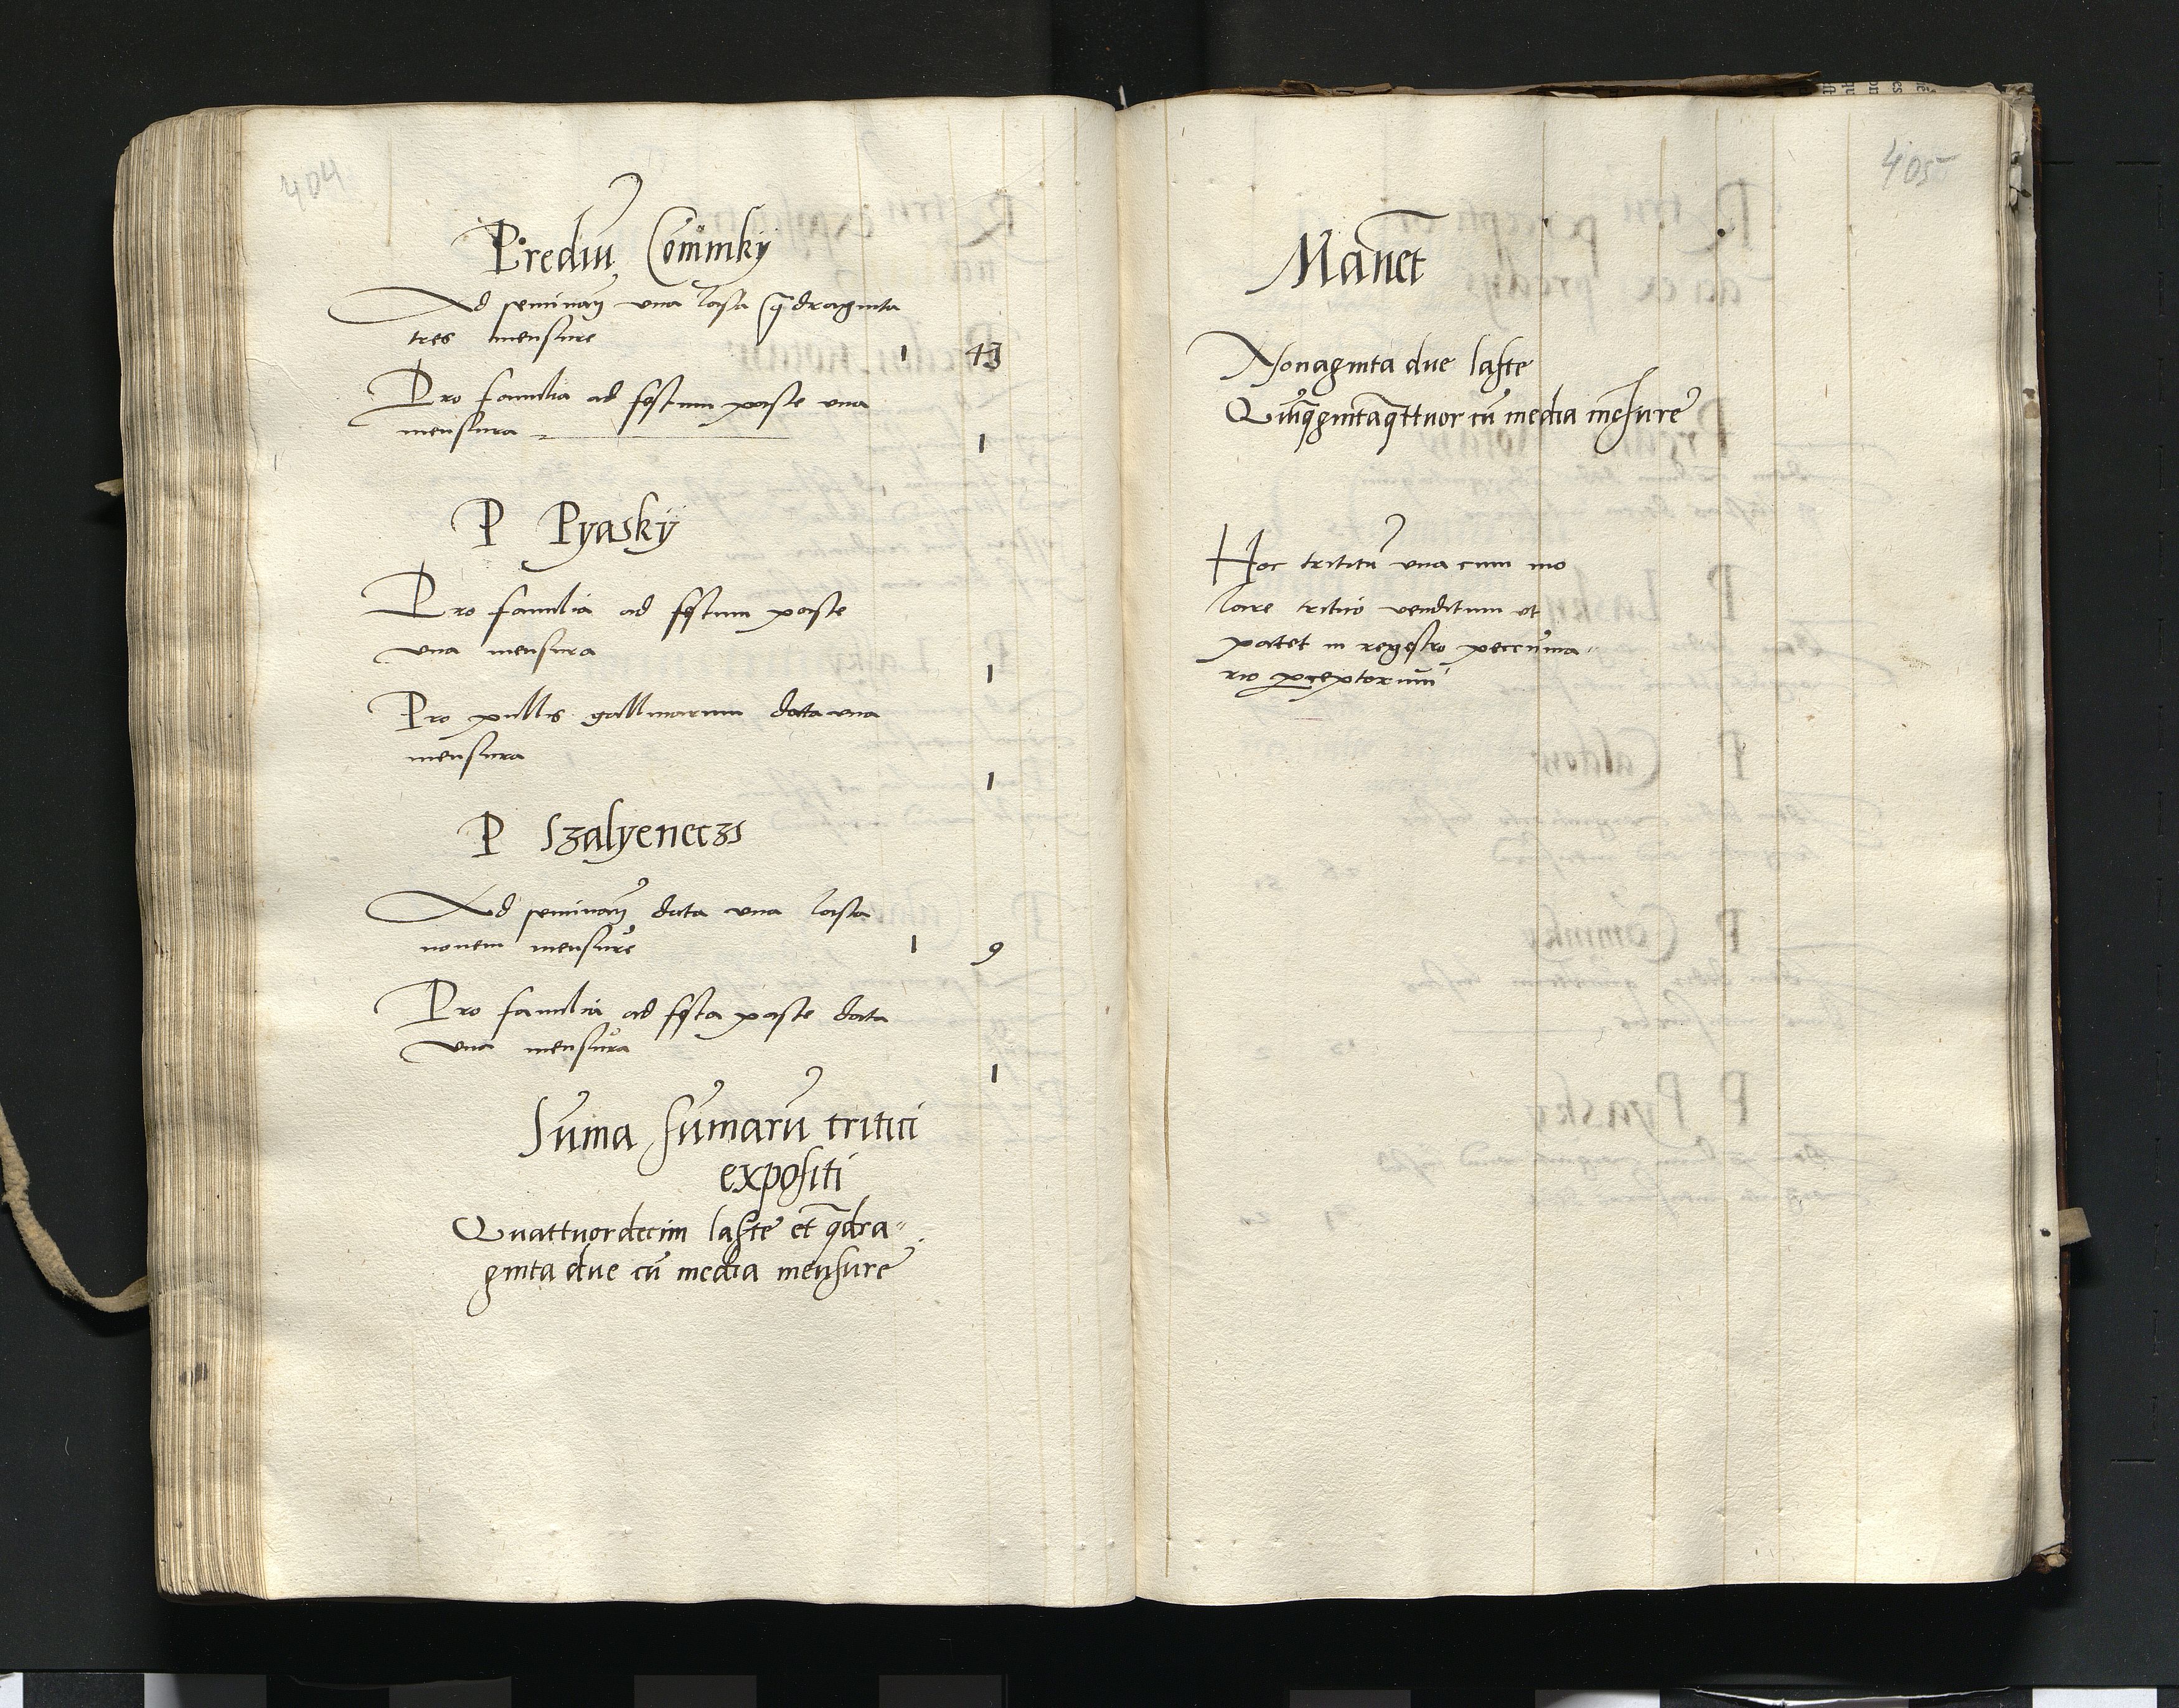 404
Prediū Cōmmky
Ad seminaꝫ una lasta q̄draginta
tres mensure
1 43
Pro familia ad festum pasce una
mensura
1
P Pyasky
Pro familia ad festum pasce
una mensura
1
Pro pullis gallinarum data una
mensura
1
P Szalyeneczs
Ad seminaꝫ data una lasta
novem mensure
1 9
Pro familia ad festa pasce data
una mensura
1
Sūma sūmarū tritici
expositi
Quattuordecim laste et q̄dra-
ginta due cū media mensure
405
Manet
Nonaginta due laste
Quīq̄gintaq̄ttuor cū media mēsure
Hoc triticū una cum mo
lare tritico venditum ut
patet in regestro peccunia-
rio ꝑceptorum